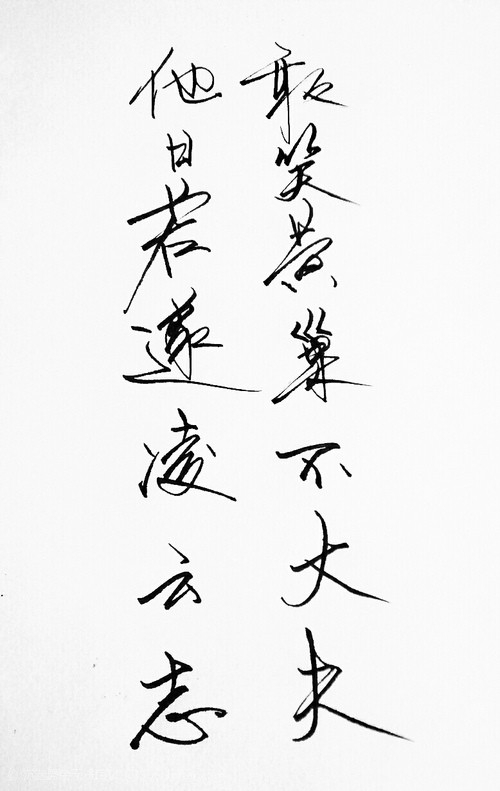 他日若遂凌云志
敢笑黄巢不丈夫